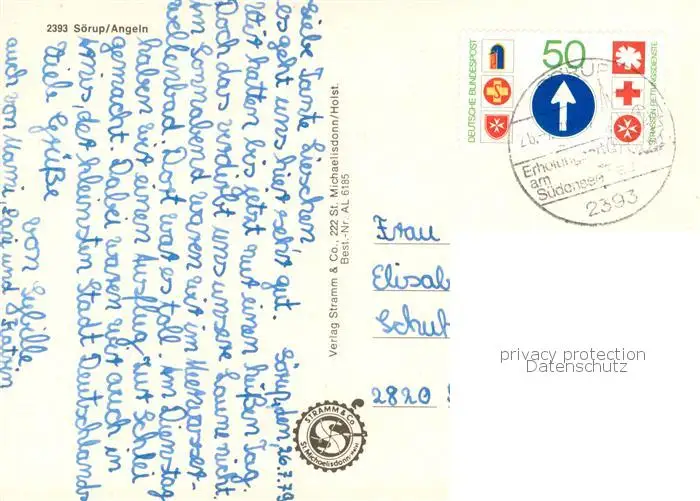 2393 Sörup/Angeln
Sörup, den, 26.7.79
Liebe Tante Lieschen
es geht uns hier sehr gut.
Wir hatten bis jetzt nur einen heißen Tag.
Doch das verdirbt uns unsere Laune nicht.
Im Sonnabend waren wir im Meerwasser-
wellenbad Dort war es toll. Am Dienstag
haben wir einen Ausflug zur Schlei
gemacht. Dabei waren wir auch in
Arnis, der kleinsten Stadt Deutschlands
Viele Grüße
von Sybille
auch von Mami, und Katrin
Verlag Stramm & Co., 222 St. Michaelisdonn/Holst.
Best.-Nr. AL 6185
STRAMM & Co
St. Michaelisdonn
DEUTSCHE BUNDESPOST
50
STRASSEN RETTUNGSDIENSTE
Erholung
am
Südensee
2393
Frau
Elisab
Schul
2820
privacy protection
Datenschutz